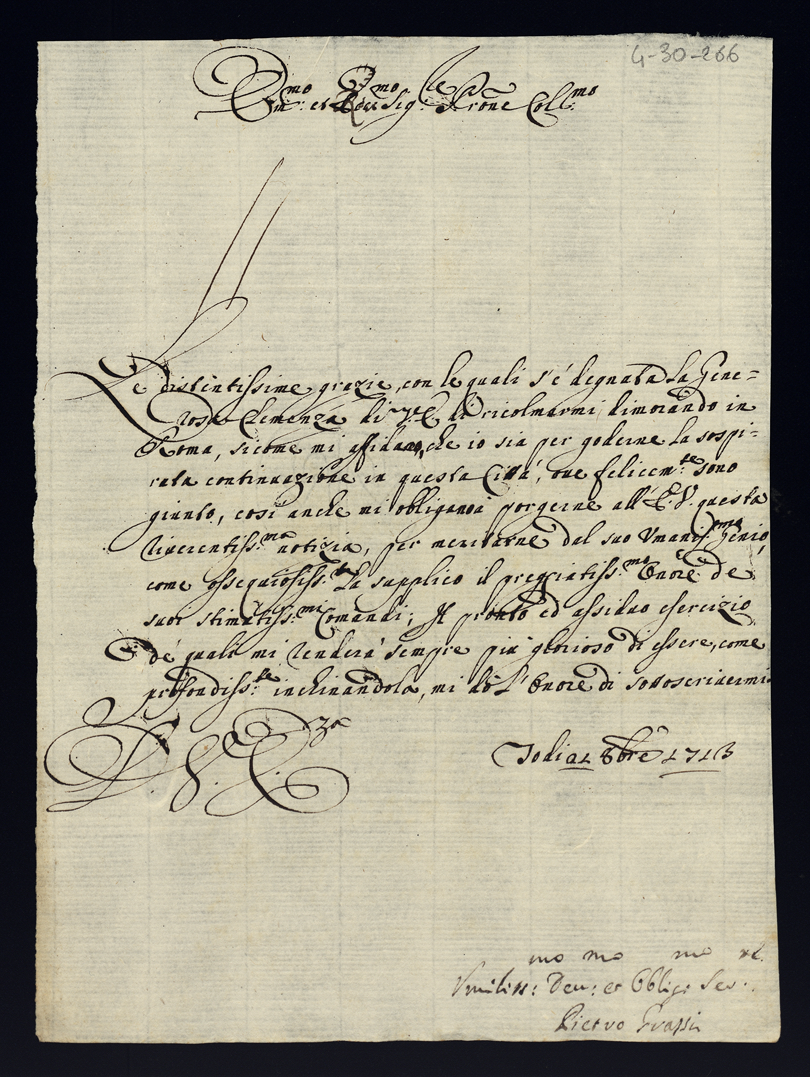 4-30-266
Em.mo et R.mo Sig.re Prone Coll.mo
Le distintissime grazie, con le quali s'è degnata La Gene=
rosa Clemenza di V.E. di ricolmarmi, dimorando in
Roma, sicome mi affidano, che io sia per goderne la sospi=
rata continuazione in questa Città, oue felicem.te sono
giunto, cosi anche mi obligano à porgerne all'E.V. questa
riuerentiss.ma notizia, per meritarne dal suo Vmaniss.mo Genio,
come ossequiosiss.te La supplico il pregiatiss.mo Onore de
suoi stimatiss.mi Comandi; Il pronto ed assiduo esercizio
de' quali mi renderà sempre più glorioso di essere, come
profondiss.te inchinandola, mi dò l'Onore di sottoscriuermi
D. V. E.za
Iodi a 1 8bre 1713
Vmiliss:mo Deu:mo et Oblig:mo Ser.re
Pietro Grassi